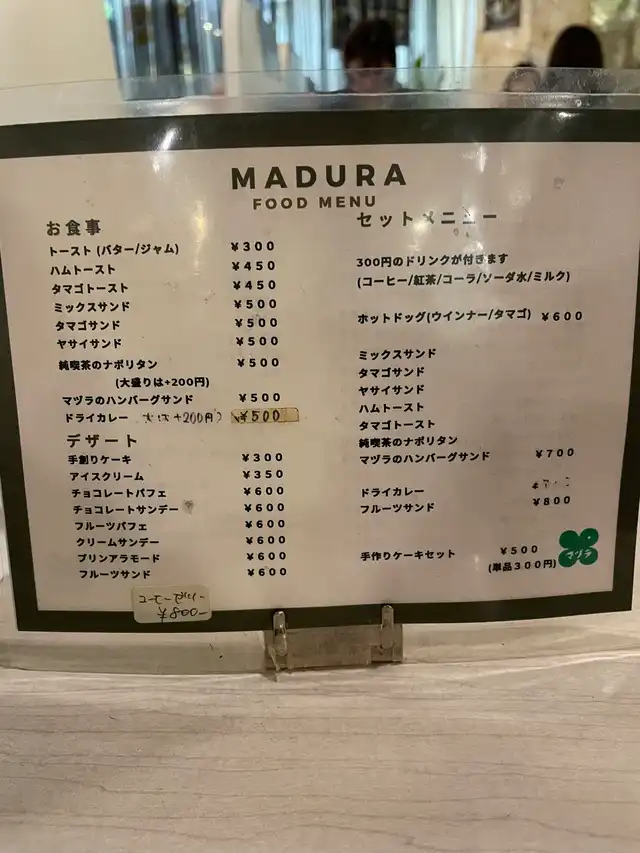 MADURA
FOOD MENU
お食事
トースト (バター/ジャム) ¥300
ハムトースト ¥450
タマゴトースト ¥450
ミックスサンド ¥500
タマゴサンド ¥500
ヤサイサンド ¥500
純喫茶のナポリタン ¥500
(大盛りは+200円)
マヅラのハンバーグサンド ¥500
ドライカレー 大は+200円 ¥500
デザート
手創りケーキ ¥300
アイスクリーム ¥350
チョコレートパフェ ¥600
チョコレートサンデー ¥600
フルーツパフェ ¥600
クリームサンデー ¥600
プリンアラモード ¥600
フルーツサンド ¥600
コーヒーゼリー
¥800-
セットメニュー
300円のドリンクが付きます
(コーヒー/紅茶/コーラ/ソーダ水/ミルク)
ホットドッグ(ウインナー/タマゴ) ¥600
ミックスサンド
タマゴサンド
ヤサイサンド
ハムトースト
タマゴトースト
純喫茶のナポリタン
マヅラのハンバーグサンド ¥700
ドライカレー
フルーツサンド ¥800
手作りケーキセット ¥500
(単品300円)
マヅラ